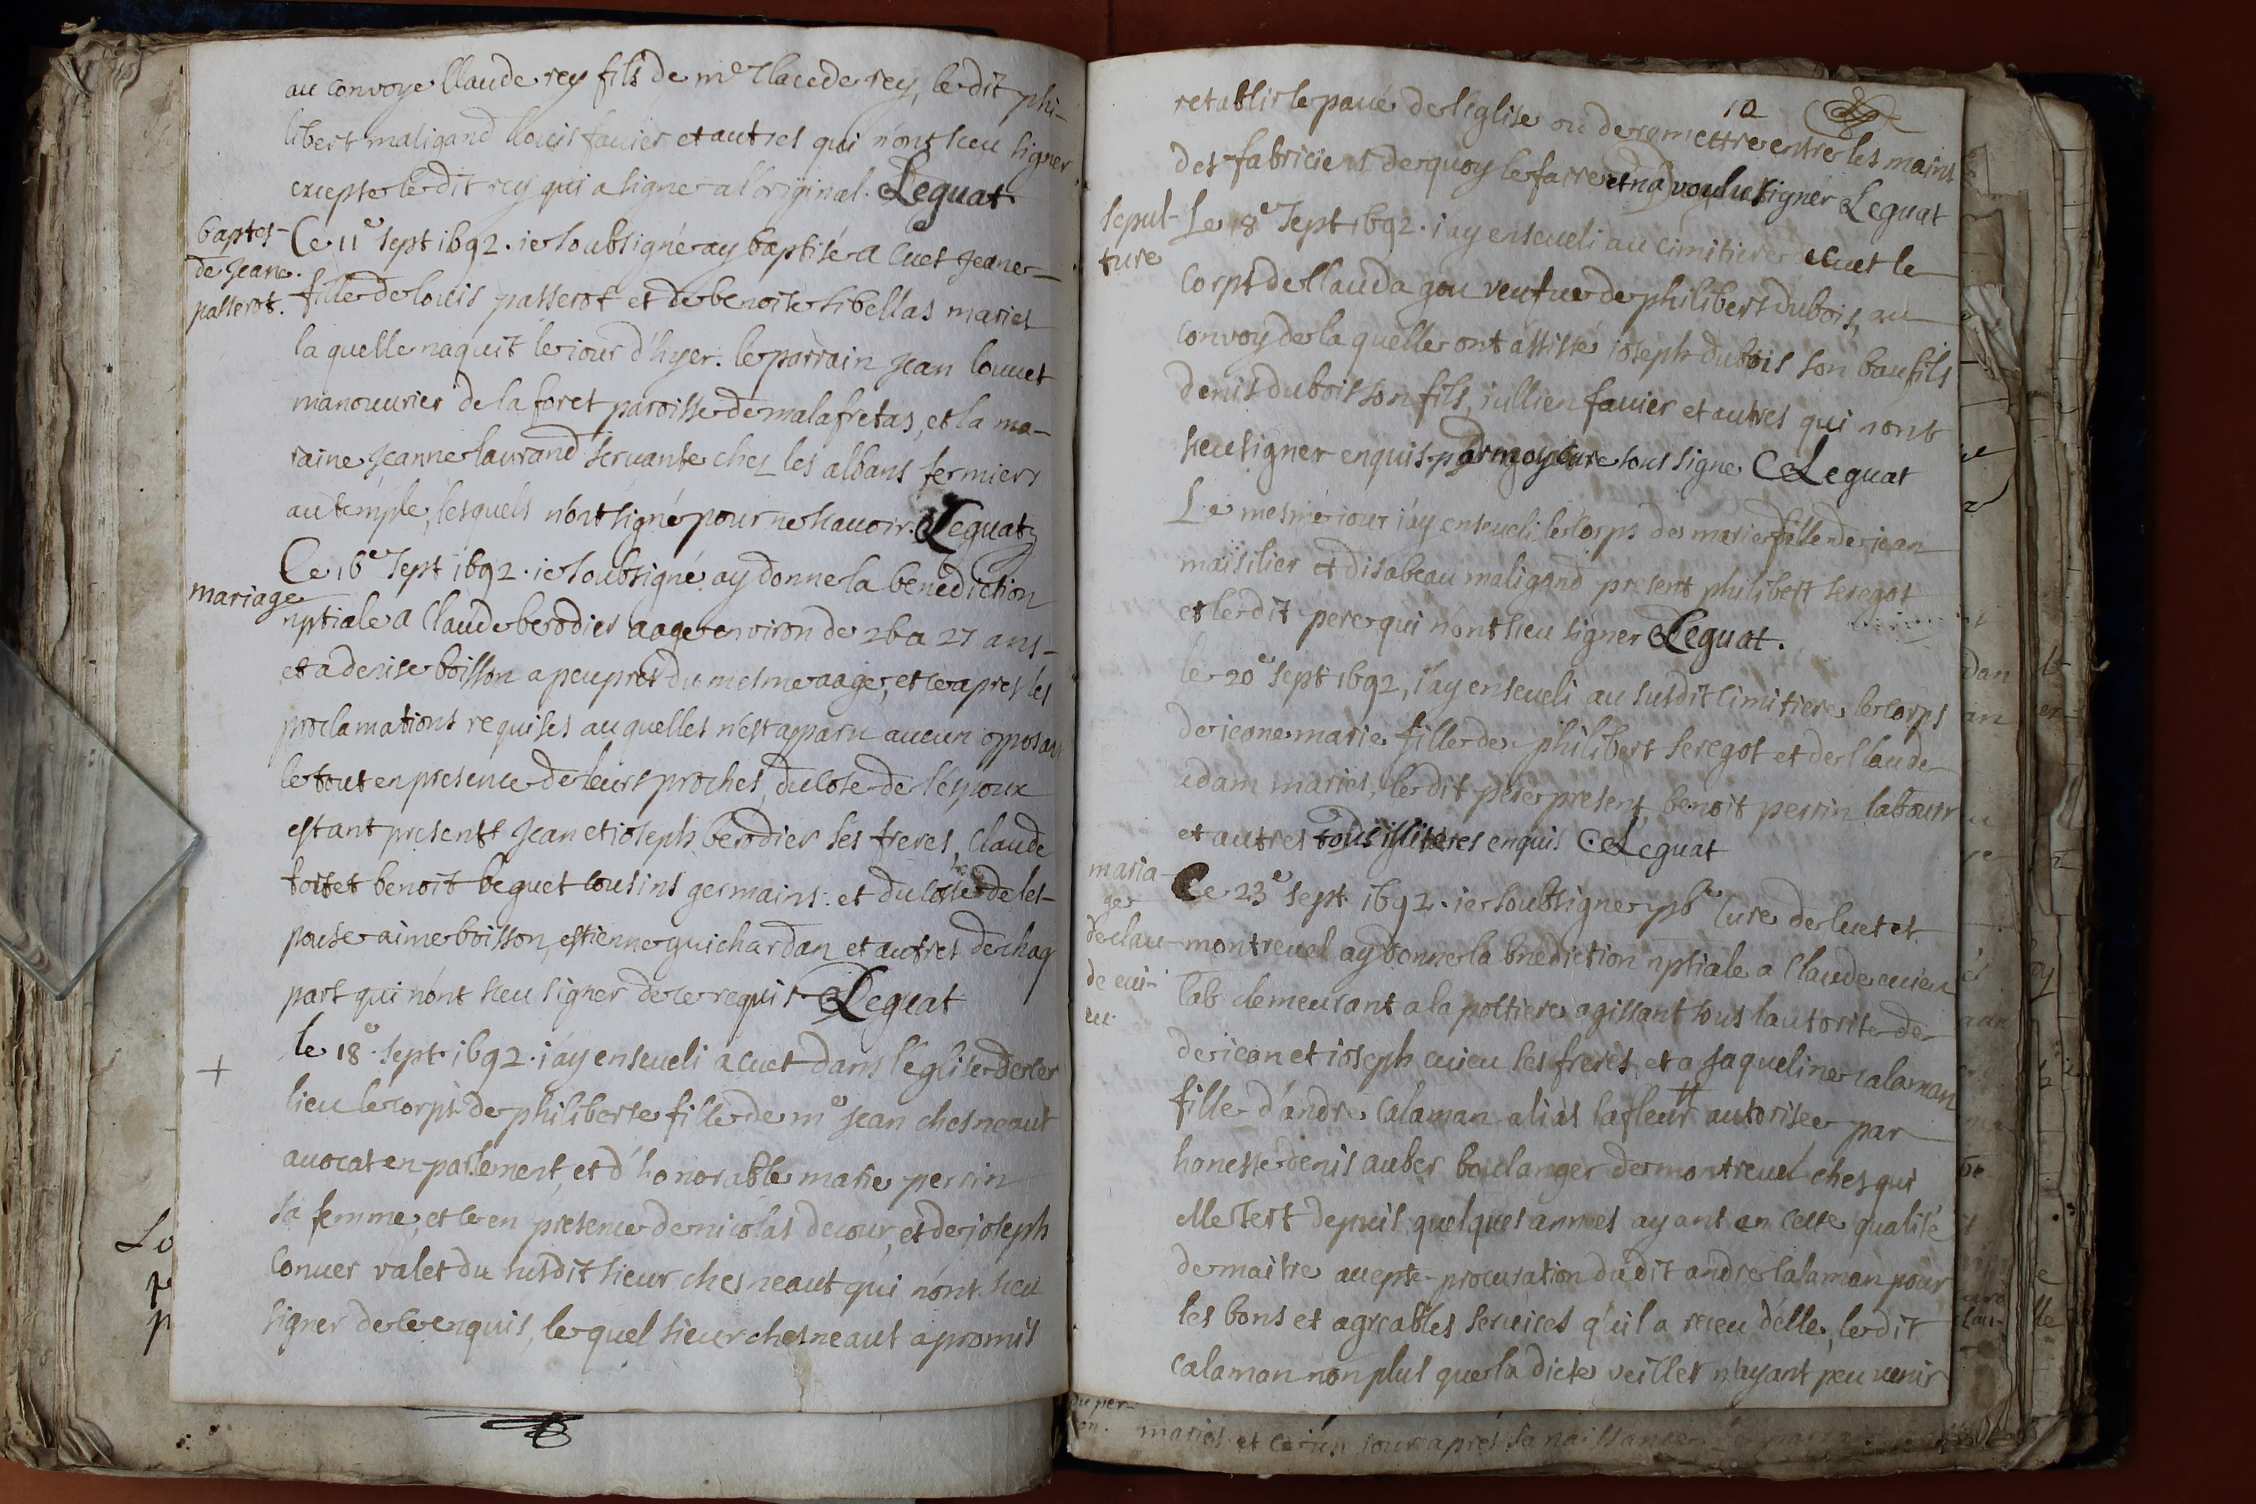 au convoye Claude rey fils de me Claude rey, le dit phi-
libert maligand louis favier et autres qui n'ont sceu signer
excepte le dit rey qui a signe a l'original. Leguat
baptes-
de Jeane
passerot.
Ce 11e sept 1692. ie soubsigné ay baptisé a Cuet Jeane
fille de louis passerot et de benoite sibellas maries
la quelle naquit le jour d'hyer. le parrain Jean louuet
manouurier de la foret paroisse de malafretas, et la ma-
raine Jeanne laurand seruante chez les albans fermiers
au temple, lesquels n'ont signé pour ne scauoir. Leguat
mariage
Ce 16e sept 1692. ie soubsigné ay donne la benediction
nptiale a Claude berodier aage environ de 26 a 27 ans
et a denise boisson a peu pres du mesme aage, et ce apres les
proclamations requises auquelles n'est apparu aucun opposant
le tout en presence de leurs proches, du coste de l'espoux
estant presents Jean et ioseph berodier ses freres, Claude
et benoit beguet cousins germains: et du coste de les-
pouse aime boisson, estienne guichardan et autres de chaq
part qui n'ont sceu signer de ce requis. Leguat
+
le 18e sept. 1692. i'ay enseueli a Cuet dans l'eglise de ce
lieu le corps de philiberte fille de me Jean chesneaut
auocat en parlement, et d'honorable marie perrin
sa femme, et ce en presence de nicolas decour, et de joseph
Conuer valet du susdit sieur chesneaut qui n'ont sceu
signer de ce enquis, le quel sieur chesneaut a promis
10
retablir le paué de l'eglise ou de remettre entre les mains
des fabriciens de quoy le faire et n'a voulu signer Leguat
sepul-
ture
Le 18e sept 1692. i'ay enseueli au cimitiere de Cuet le
Corps de Clauda gou veufue de philibert dubois, au
convoy de la quelle ont assisté ioseph dubois son baufils
denis dubois son fils, iullien fauier et autres qui n'ont
sceu signer enquis par moy cure sous signe Leguat
Le mesme iour i'ay enseueli le corps de marie fille de jean
maisilier et d'isabeau maligand present philibert seregot
et le dit pere qui n'ont sceu signer Leguat.
le 20e sept 1692, i'ay enseueli au susdit cimitiere le corps
de jeane marie fille de philibert seregot et de Claude
adam maries, le dit pere present, benoit perrin labour
et autres tous illiteres enquis Leguat
maria-
ge
de clau-
de cui-
eu.
Ce 23e sept 1692. ie soubsigne pbre Cure de Cuet et
montreuel ay donne la bnediction nptiale a Claude cuieu
lab demeurant a la poltiere agissant sous lautorite de
de jean et ioseph cuieu ses freres, et a Jaqueline calaman
fille d'andre Calaman alias lafleur autorisee par
honeste denis auber boulanger de montreuel ches qui
elle sert depuis quelques annees ayant en cette qualité
de maitre accepte procuration du dit andre Calaman pour
les bons et agreables seruices qu'il a receu d'elle, le dit
Calaman non plus que la dicte veillet n'ayant peu venir